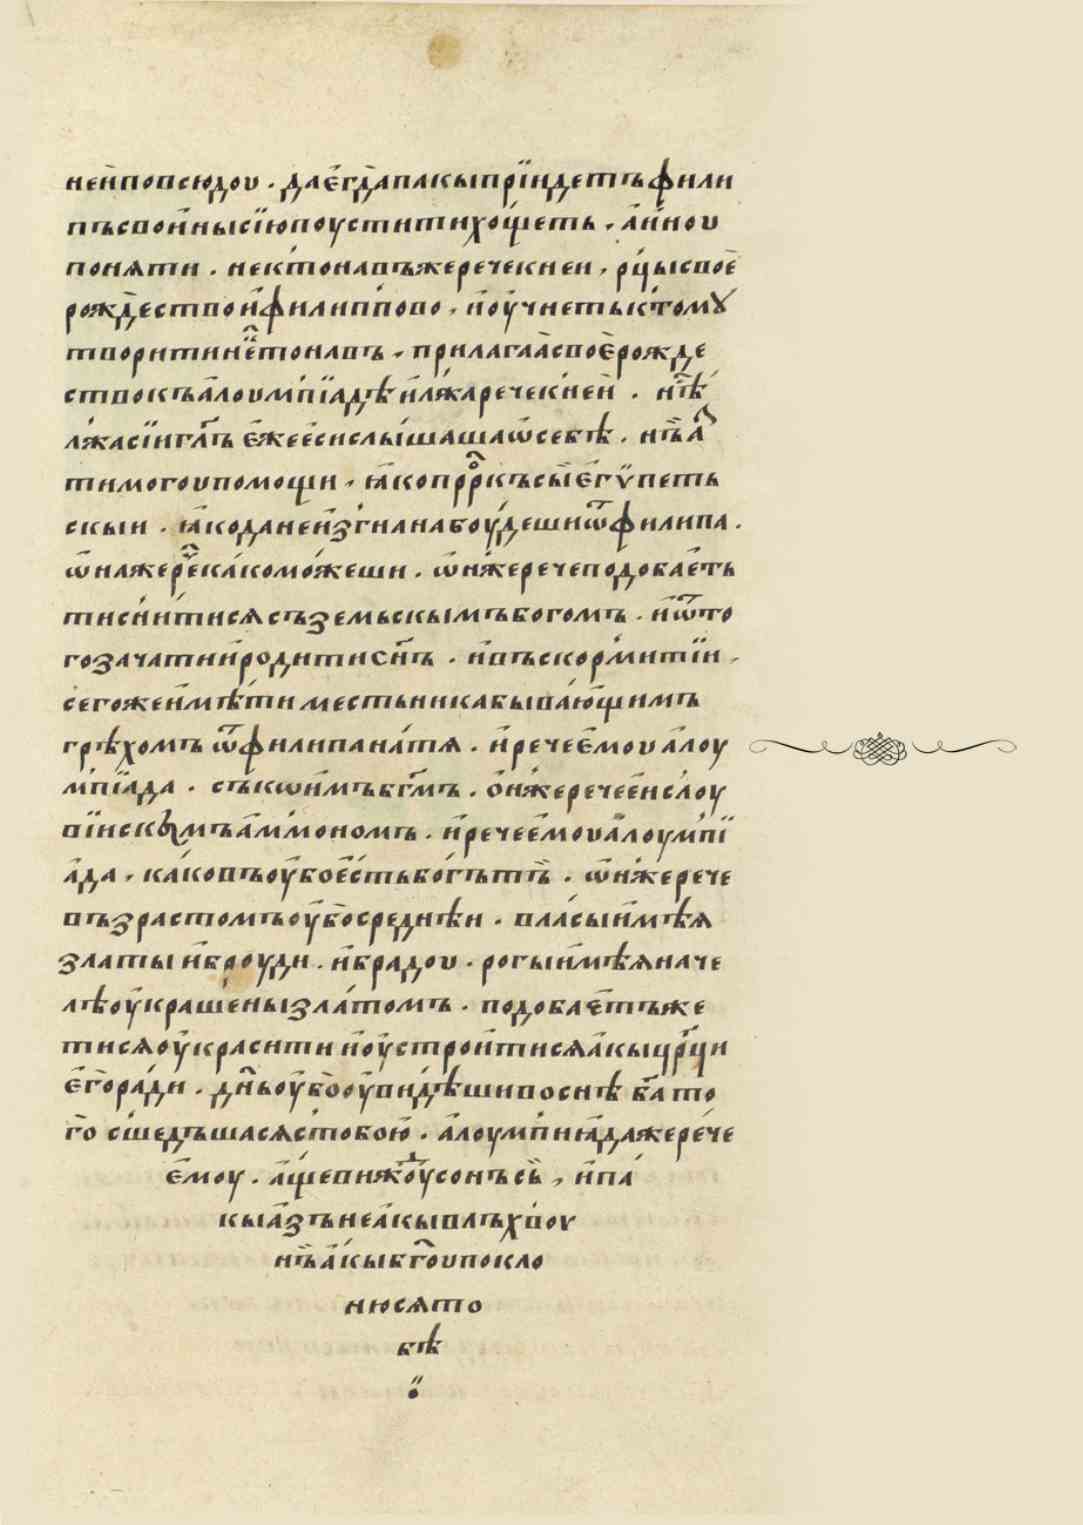 ней повсюдоу . да е҆гда̀ пакы прїидетъ фили
пъ с вои҆ны сїю поустити хощ́еть , а҆и҆ноу
поняти . некто́навъ же рече к неи , рцы́ своѐ
рождество и҆ филип́пово , и҆ оу҆чнеть к томꙋ́
творити не҆ктонавъ , прилагаа̀ своѐ рожде
ство къ а҆лоумпїадѣ и҆ лжа́ рече к не́й . нѣ́
лжа́ сїи гл҃ъ є҆же е҆си слы́шаша ѡ҆ себѣ . нъ̀ а҆
ти могоу помощи , ꙗ҆ко пррⷪ҇къ сы̀й є҆гѵпеть
скыи . ꙗ҆ко да не и҆згнана боу́деши ѿ филипа .
ѡ҆на же рⷱ҇е ка́ко мо́жеши . ѡ҆н же́ рече подобае҆ть
ти сни́тися съ земьскымъ богомъ . и҆ ѿ то
го зачати и҆ родити сн҃ъ . и҆ въскорми́ти и ,
сего же и҆мѣ́ти местьника быва́ю҆щимъ
грѣхомъ ѿ филипа на́ тя . и҆ рече е҆моу а҆лоу
мпїа́да . съ́ кѡи҆мъ бг҃мъ . о҆н же́ рече е҆и с лоу
вїискы́мъ а҆ммономъ . и҆ рече е҆моу а҆лоумпї
а҆да , ка́ковъ оу҆бо е҆́сть бо́гъ тъ̀ . ѡ҆н же́ рече
възрастомъ оу҆бо̀ среднѣи . вла́сы и҆мѣя
златы и҆ броуди . и҆ брадоу . рогы и҆мѣя на че
лѣ оу҆кра́шены зла́томъ . подобае҆тъ же
тися оу҆красити и҆ оу҆строи҆тися а҆кы црⷭ҇ци
е҆го̀ ра́ди . дн҃ь оу҆бо̀ оу҆ви́дѣши во снѣ ба҃ то
го̀ сше́дъшася с тобою҆ . а҆лоумпи́ꙗ҆да же рече́
е҆моу . а҆щ́е вижоу҆ сонъ сь̀ , и҆ па́
кы а҆зъ не а҆кы влъхво́у
нъ̀ а҆́кы бг҃оу покло
нюся то
бѣ